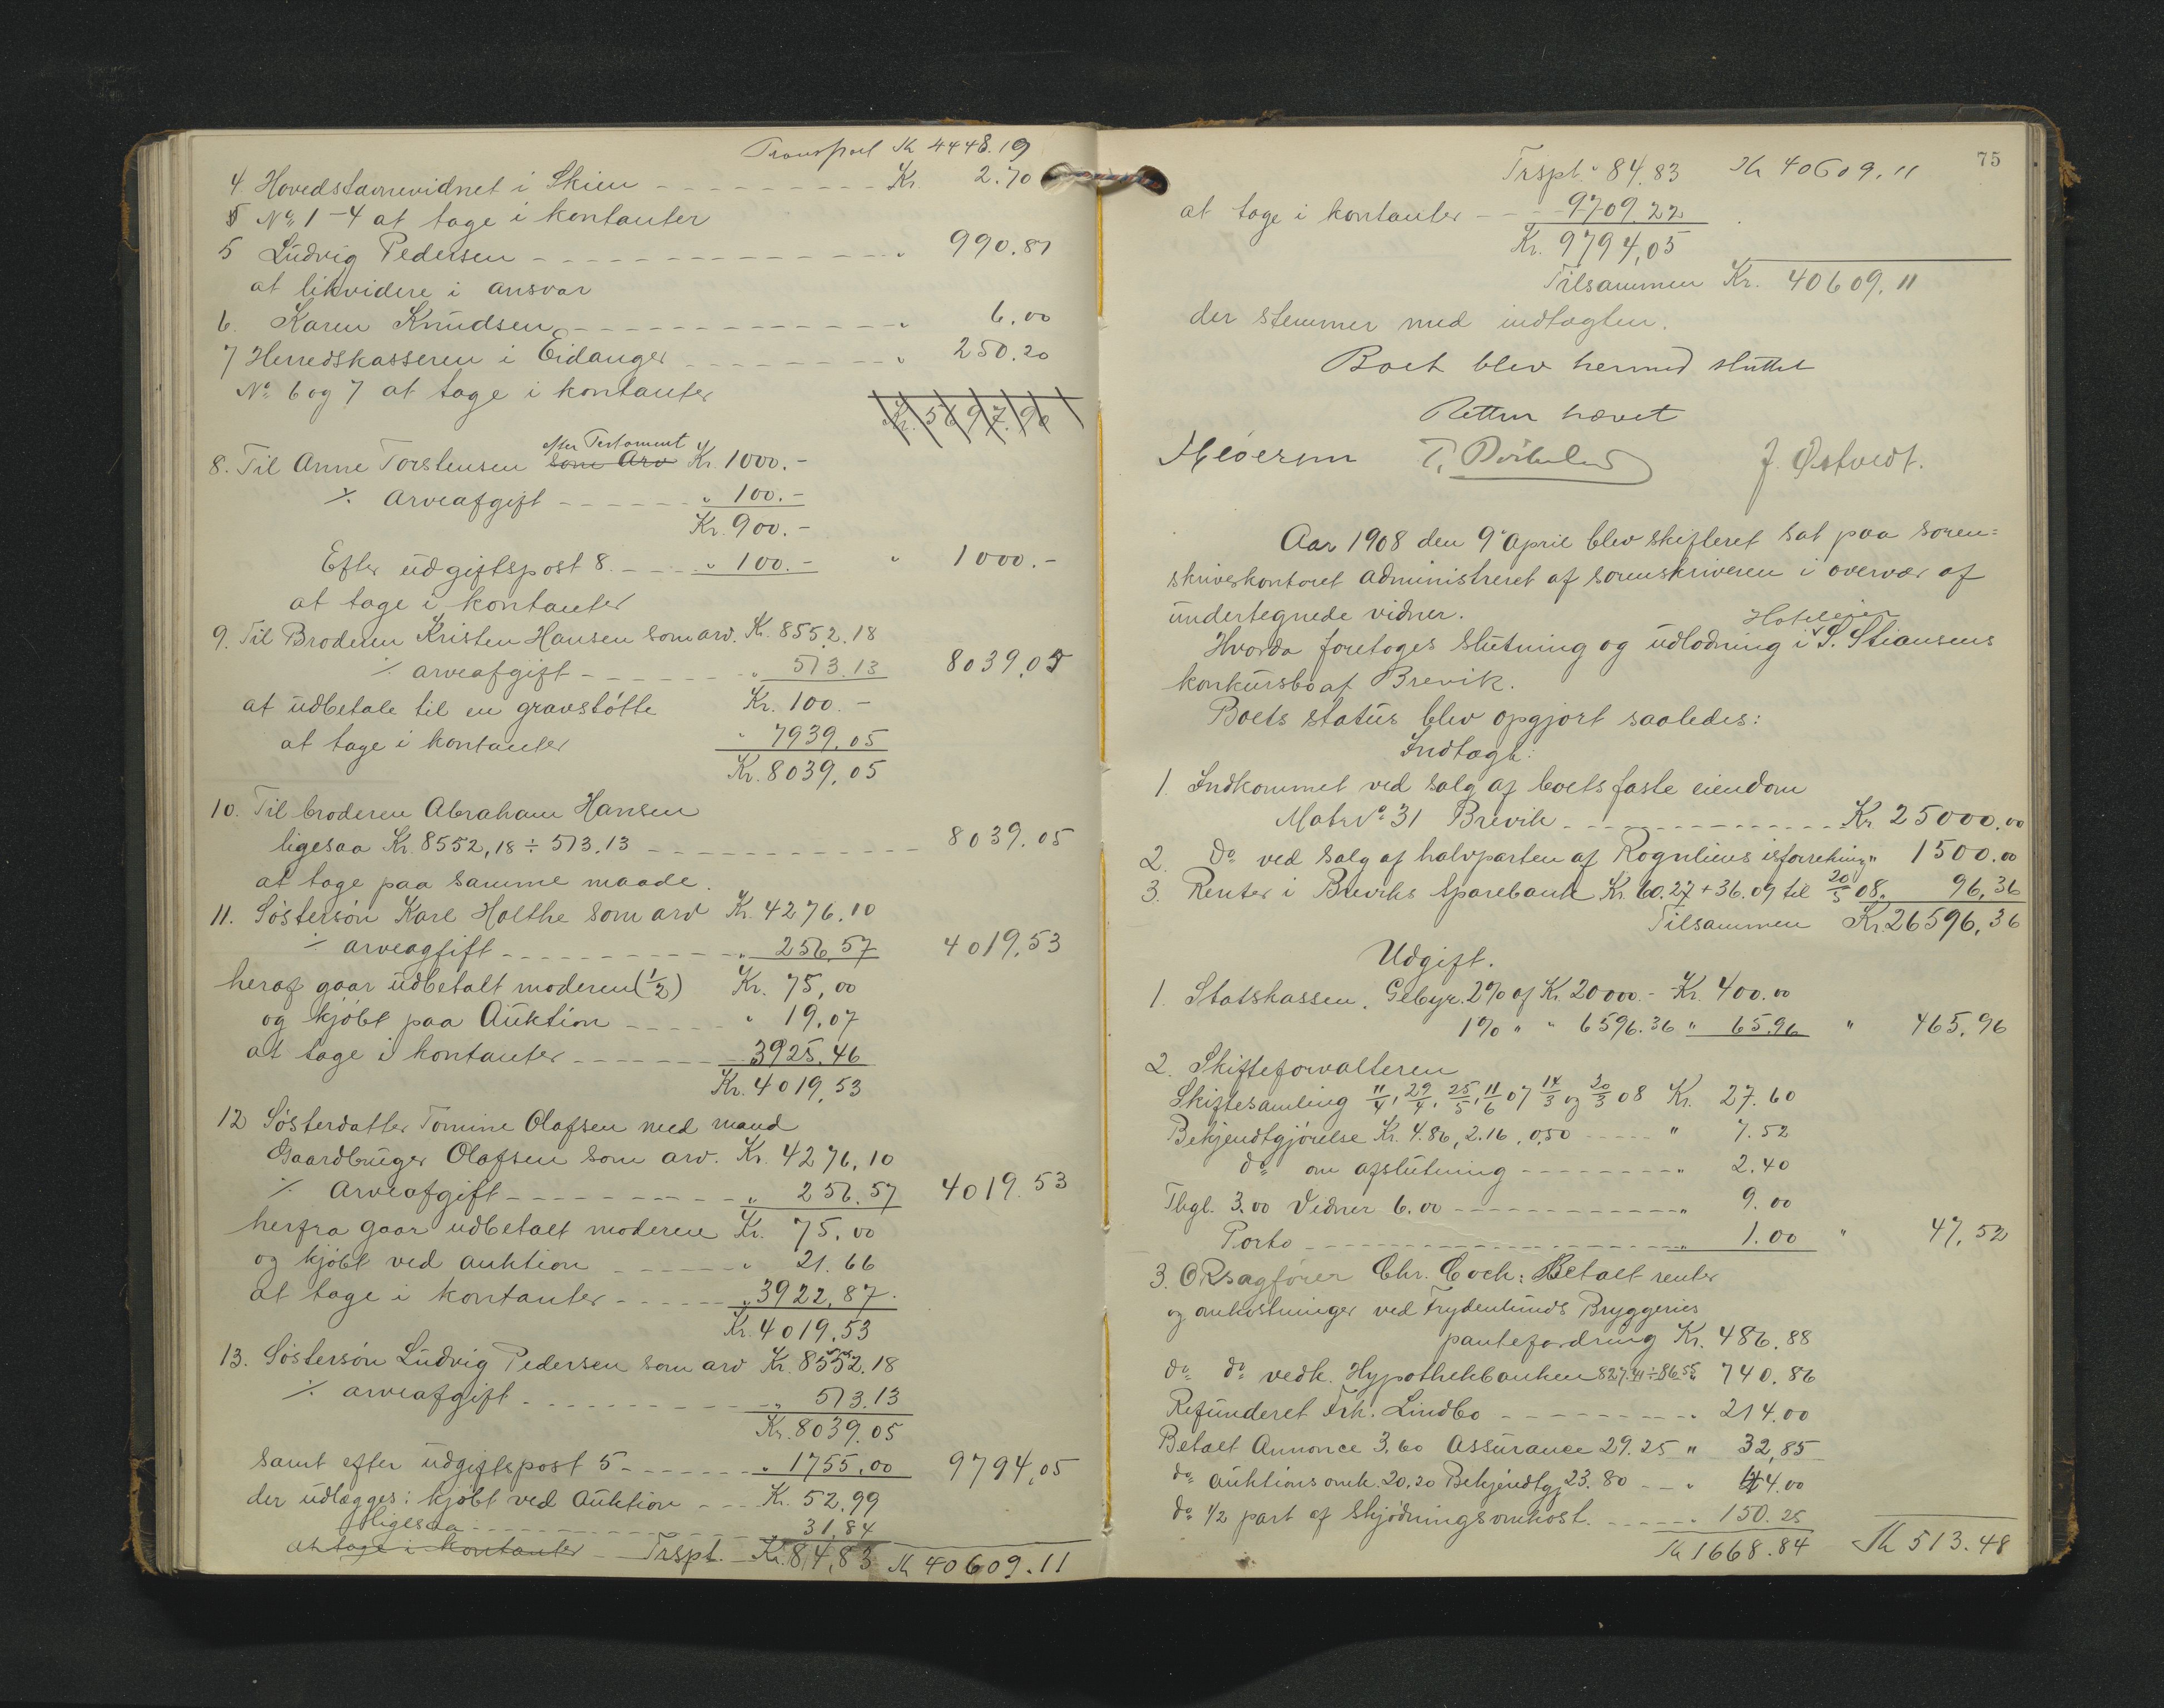 Transport Kr 4448.19
4. Hovedstavnevidnet i Skien Kr. 2.70
No 1-4 at tage i kontanter
5 Ludvig Pedersen " 990.87
at likvidere i ansvar
6. Karen Knudsen " 6.00
7 Herredskasseren i Eidanger " 250.20
No 6 og 7 at tage i kontanter
Kr. 5697.96
efter Testament
8. Til Anne Torstensen som Arv Kr. 1000.-
÷ Arveafgift " 100.-
Kr. 900.-
Efter udgiftspost 8. " 100.- " 1000.-
at tage i kontanter
9. Til Broderen Kristen Hansen som arv. Kr. 8552.18
÷ arveafgift " 513.13 8039.05
at udbetale til en gravstötte Kr. 100.-
at tage i kontanter " 7939.05
Kr. 8039.05
10. Til broderen Abraham Hansen
ligesaa Kr. 8552,18 ÷ 513.13 8039.05
at tage paa samme maade.
11. Söstersön Karl Holthe som arv Kr. 4276.10
÷ arveagfift " 256.57 4019.53
heraf gaar udbetalt moderen (1/2) Kr. 75,00
og kjöbt paa Auktion " 19.07
at tage i kontanter 3925.46
Kr. 4019,53
12 Sösterdatter Tomine Olafsen med mand
Gaardbruger Olafsen som arv. Kr. 4276,10
÷ Arveafgift " 256.57 4019.53
herfra gaar udbetalt moderen Kr. 75.00
og kjöbt ved auktion " 21.66
at tage i kontanter " 3922,87.
Kr. 4019.53
13. Söstersön Ludvig Pedersen som arv Kr. 8552.18
÷ arveafgift " 513.13
Kr. 8039.05
samt efter udgiftspost 5 " 1755.00 9794,05
der udlægges: kjöbt ved Auktion Kr. 52.99
ligesaa 31.84
at tage i kontanter Trspt. Kr. 84,83 Kr 40609.11
75
Trspt " 84.83 Kr 40609.11
at tage i kontanter 9709.22
Kr. 9794,05
Tilsammen Kr. 40609.11
der stemmer med indtægten.
Boet blev hermed sluttet
Retten hævet
J. Østvedt.
Aar 1908 den 9 April blev skifteret sat paa soren=
skriverkontoret administreret af sorenskriveren i overvær af
undertegnede vidner.
Hoteleier
Hvorda foretoges slutning og udlodning i S. Stiansens
konkursbo af Brevik.
Boets status blev opgjort saaledes:
Indtægt:
1. Indkommet ved salg af boets faste eiendom
Matr No 31 Brevik Kr 25000.00
2. Do ved salg af halvparten af Rognliens isforretning " 1500.00
3. Renter i Breviks Sparebank Kr. 60.27 + 36.09 til 20/5 08 " 96,36
Tilsammen Kr. 26596,36
Udgift.
1. Statskassen. Gebyr. 2% af Kr. 20000.- Kr. 400.00
1% " " 6596.36 " 65.96 " 465.96
2. Skifteforvalteren
Skiftesamling 11/4, 29/4, 25/5, 11/6 07 14/3 og 20/3 08 Kr. 27.60
Bekjendtgjörelse Kr. 4.86, 2.16, 0,50 " 7.52
do om afslutning " 2.40
Thgl. 3.00 Vidner 6.00 " 9.00
Porto " 1.00 " 47,52
3. ORsagförer Chr. Coch: Betalt renter
og omkostninger ved Frydenlunds Bryggeries
pantefordring Kr. 486.88
do do vedk. Hypothekbanken 827.41÷86.55 " 740.86
Refunderet Frk. Lindbo " 214.00
Betalt Annonce 3.60 Assurance 29.25 " 32,85
do auktionsomk. 20.20 Bekjendtgj 23.80 " 44.00
do 1/2 part af skjödningsomkost. " 150.25
Kr 1668.84 Kr 513.48